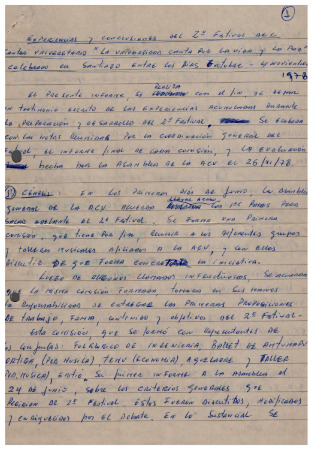 ①
Experiencias y conclusiones del 2º Festival del
Cantar Universitario "La Universidad canta por la vida y la Paz"
celebrado en Santiago entre los días Octubre - 4 Noviembre
1978
El presente informe se realiza con el fin de dejar
un testimonio escrito de las experiencias acumuladas durante
la preparación y desarrollo del 2º Festival, Se elabora
con las notas reunidas por la Coordinación general del
, el informe final de cada comisión, y la evaluación
hecha por la Asamblea de la ACU el 26/XI/78.
Génesis: En los primeros días de Junio, la Asamblea
general de la ACU acuerda los 1os pasos para
2º Festival. Se forma una primera
comisión, que tiene por fin reunir a los diferentes grupos
y talleres musicales afiliados a la ACU, y con ellos
discutir de que forma la iniciativa.
Luego de algunos llamados infructuosos, se acuerda
que la misma comisión formada, tomara en sus manos
la responsabilidad de entregar las primeras proposiciones
de trabajo, forma, contenido y objetivos del 2º Festival.-
Esta comisión, que se formó con representantes de
los conjuntos: Folklorico de Ingeniería, Ballet de Antumapu
Ortiga, (Ped. Musica) Temu (Economía) Aquelarre y Taller
Ped. Musical, emitió su primer informe a la Asamblea el
24 de Junio, sobre los criterios generales que
regirían el 2º Festival. Estos fueron discutidos, modificados
y enriquecidos por el debate. En lo sustancial se